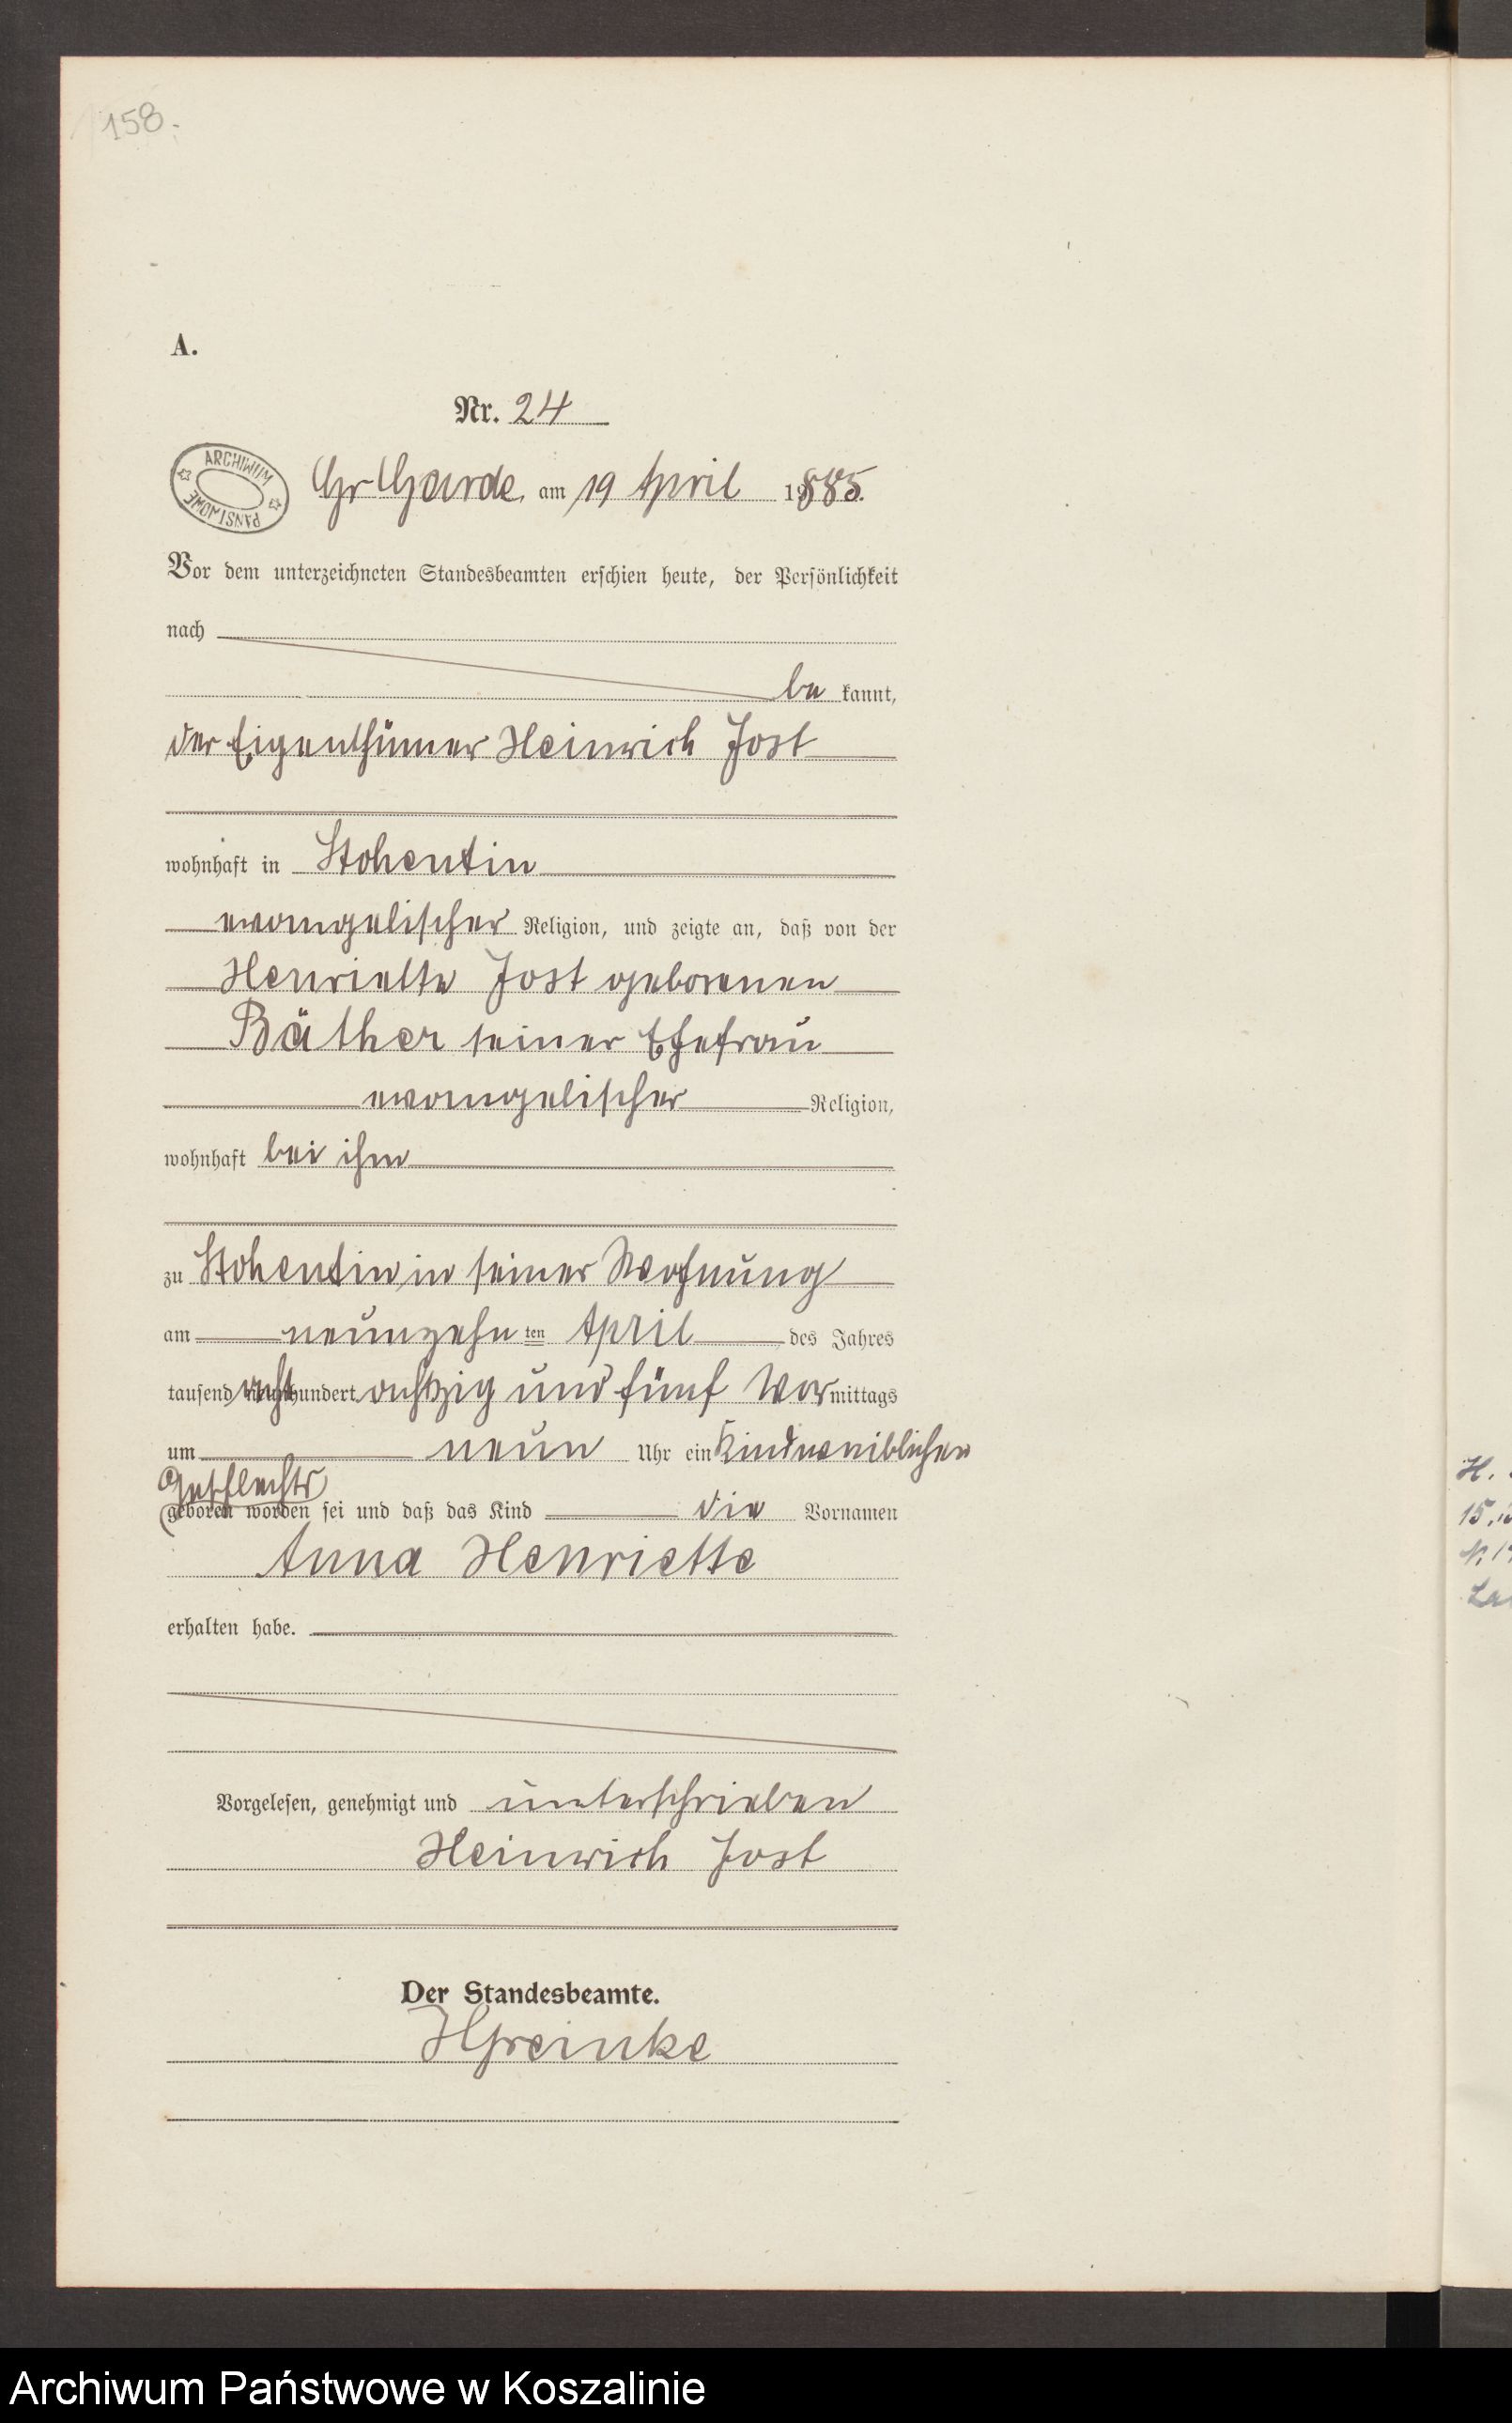 158.
A.
Nr. 24
ARCHIWUM PAŃSTWOWE
Gr Garde, am 19 April 1885.
Vor dem unterzeichneten Standesbeamten erschien heute, der Persönlichkeit
nach
be kannt,
der Eigenthümer Heinrich Jost
wohnhaft in Stohentin
evangelischer Religion, und zeigte an, daß von der
Henriette Jost geborenen
Bäther seiner Ehefrau
evangelischer Religion,
wohnhaft bei ihm
zu Stohentin in seiner Wohnung
am neunzehn ten April des Jahres
tausend acht hundert achtzig und fünf Vor mittags
um neun Uhr ein Kind weiblichen
Geschlechts
geboren worden sei und daß das Kind die Vornamen
Anna Henriette
erhalten habe.
Vorgelesen, genehmigt und unterschrieben
Heinrich Jost
Der Standesbeamte.
H. 
15.
Archiwum Państwowe w Koszalinie